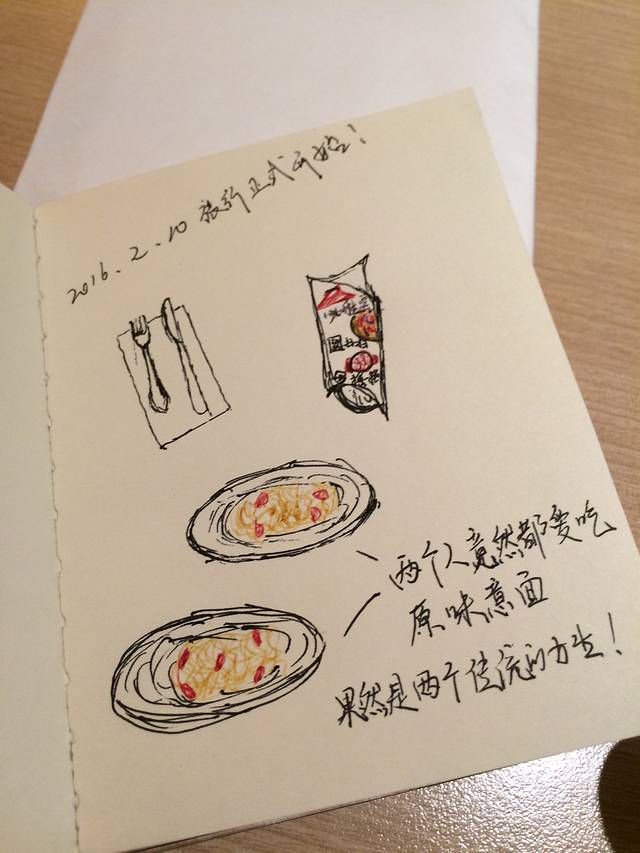 2016.2.10 旅行正式开始!
两个人竟然都爱吃
原味意面
果然是两个传统的方生!